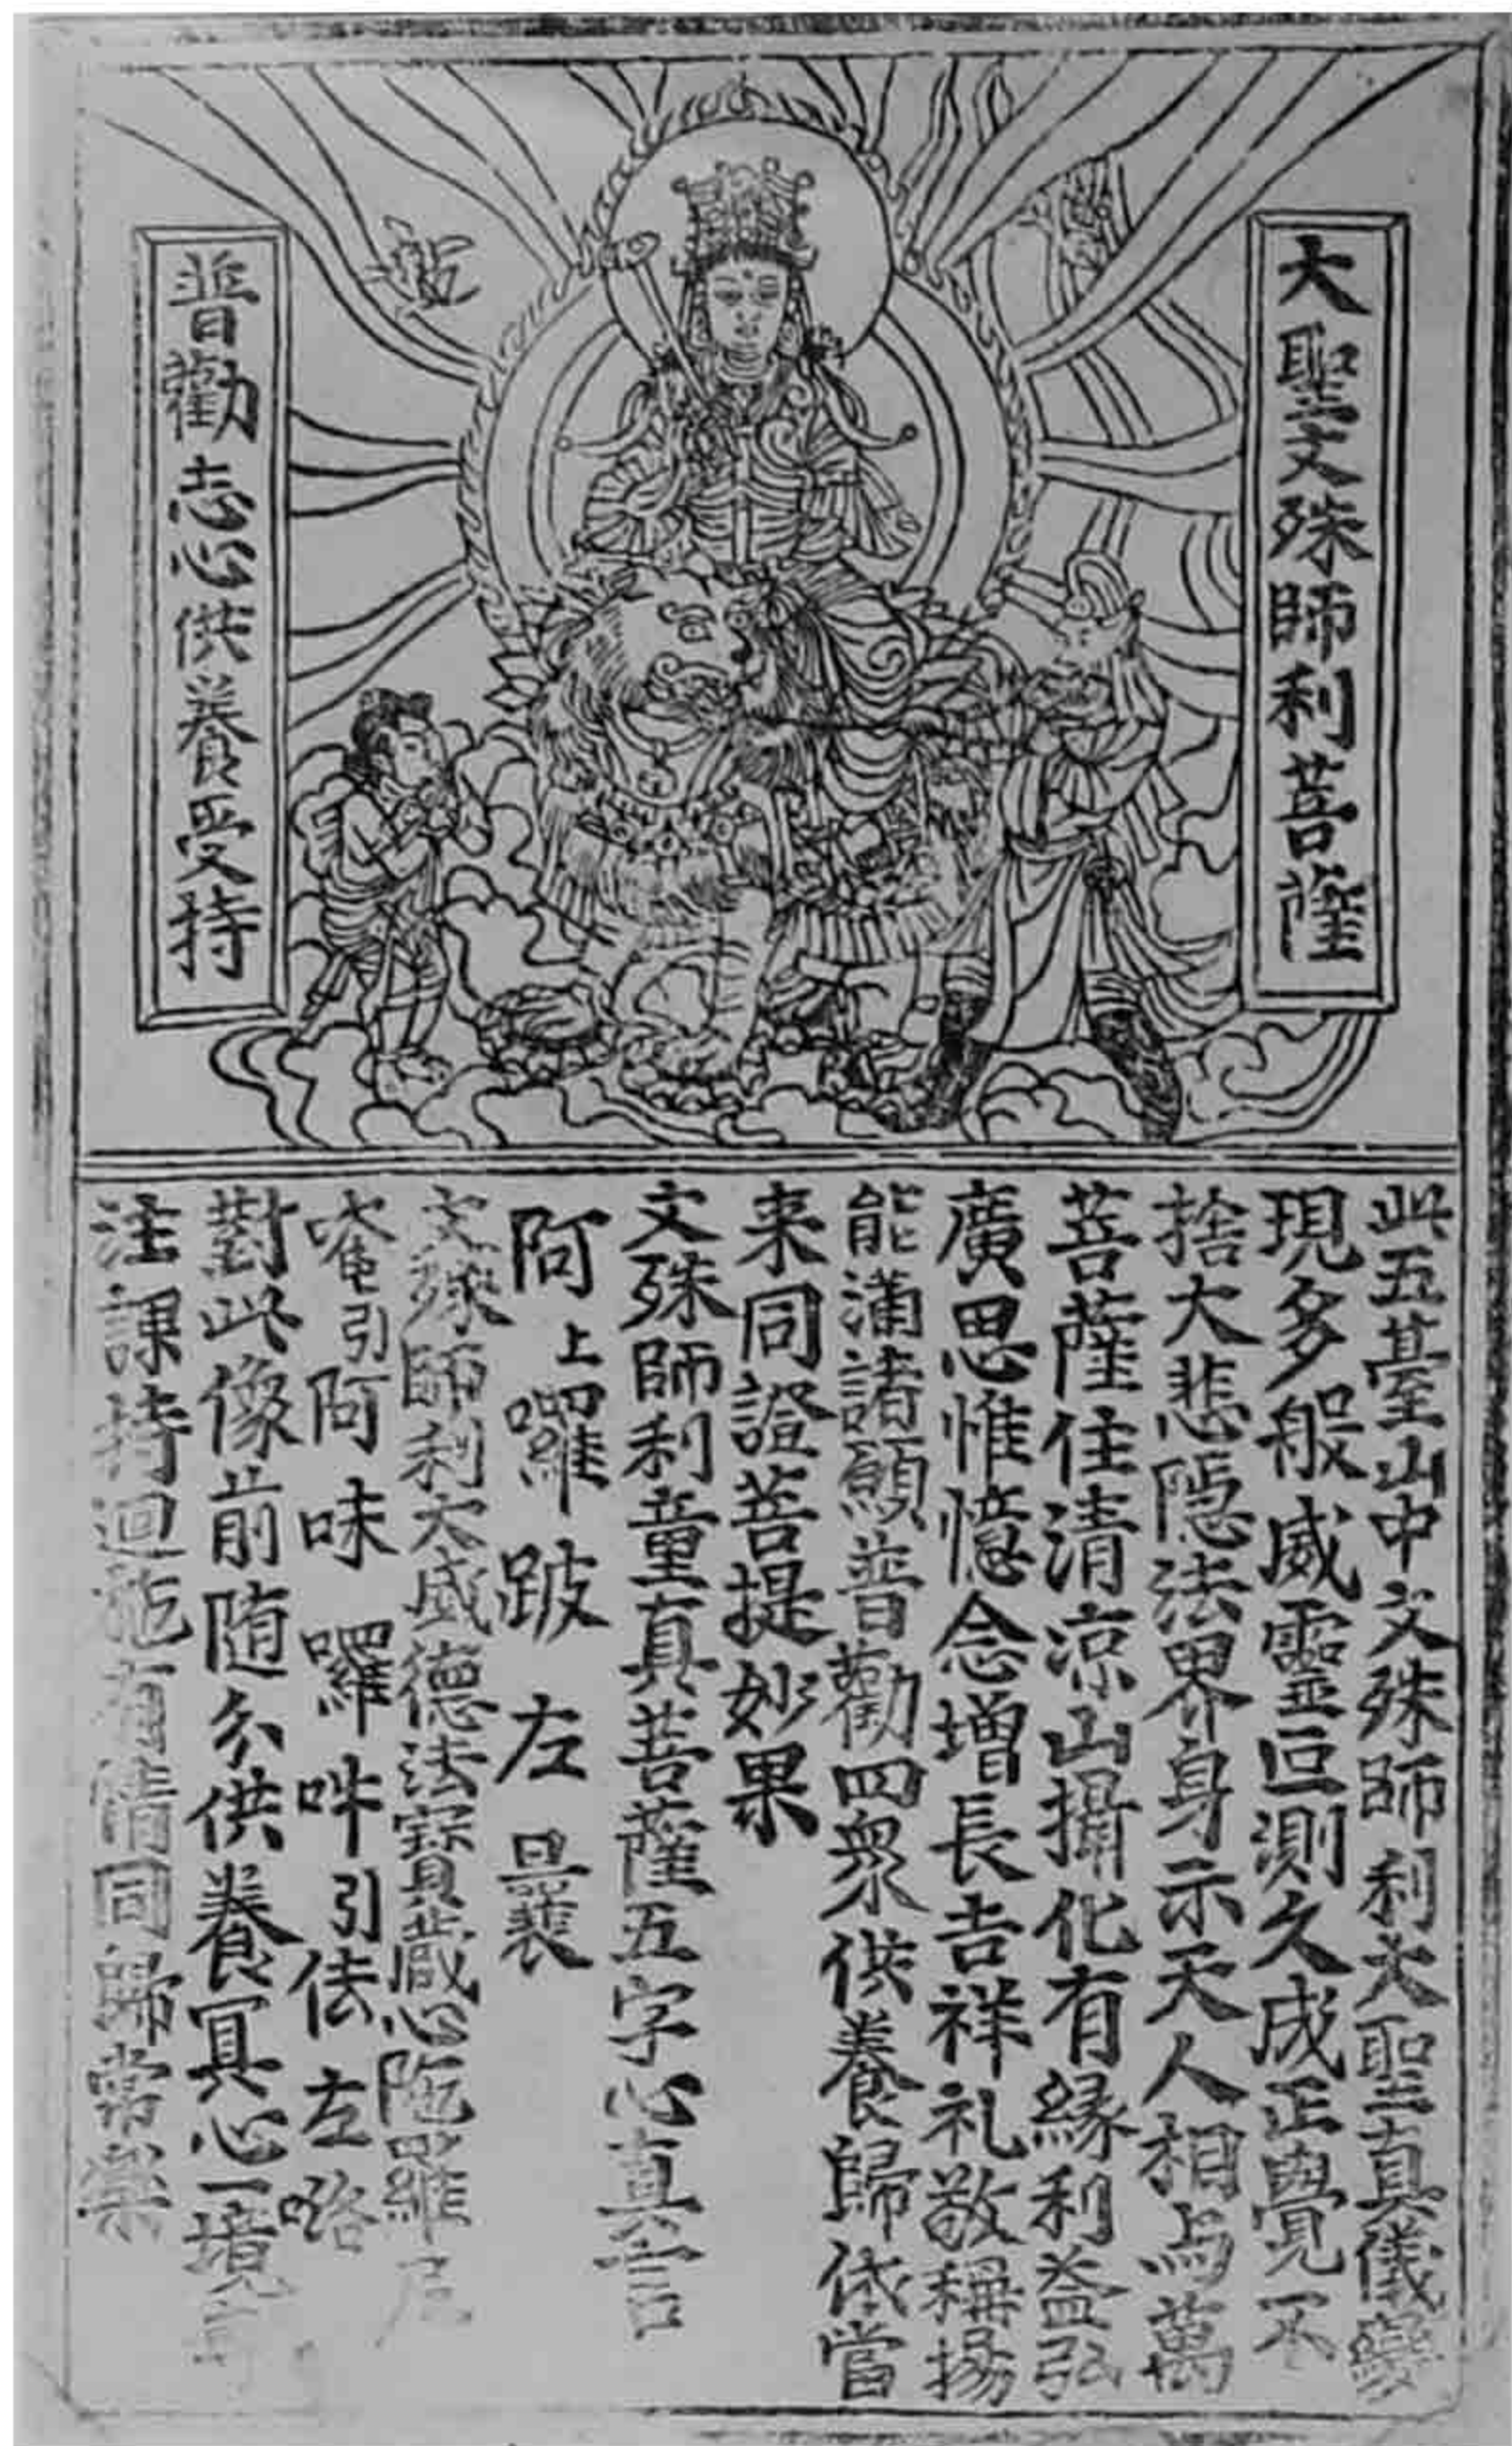 大聖文殊師利菩薩
普勸志心供養受持
此五臺山中文殊師利大聖真儀變
現多般威靈叵測久成正覺不
捨大悲隱法界身示天人相与萬
菩薩住清涼山攝化有緣利益弘
廣思惟憶念增長吉祥礼敬稱揚
能滿諸願普勸四衆供養歸依當
来同證菩提妙果
文殊師利童真菩薩五字心真言
阿上囉跛左曩
文殊師利大威德法寶藏心陁羅尼
唵引阿味囉吽引佉左咯
對此像前随分供養冥心一境
注課持迴施有情同歸常樂